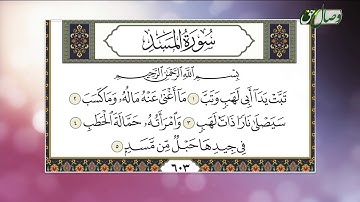 وصال حق
سُورَةُ المَسَدِ
بِسْمِ اللَّهِ الرَّحْمَٰنِ الرَّحِيمِ
تَبَّتْ يَدَا أَبِي لَهَبٍ وَتَبَّ ١ مَا أَغْنَىٰ عَنْهُ مَالُهُ وَمَا كَسَبَ ٢
سَيَصْلَىٰ نَارًا ذَاتَ لَهَبٍ ٣ وَامْرَأَتُهُ حَمَّالَةَ الْحَطَبِ ٤
فِي جِيدِهَا حَبْلٌ مِّن مَّسَدٍ ٥
٦٠٣